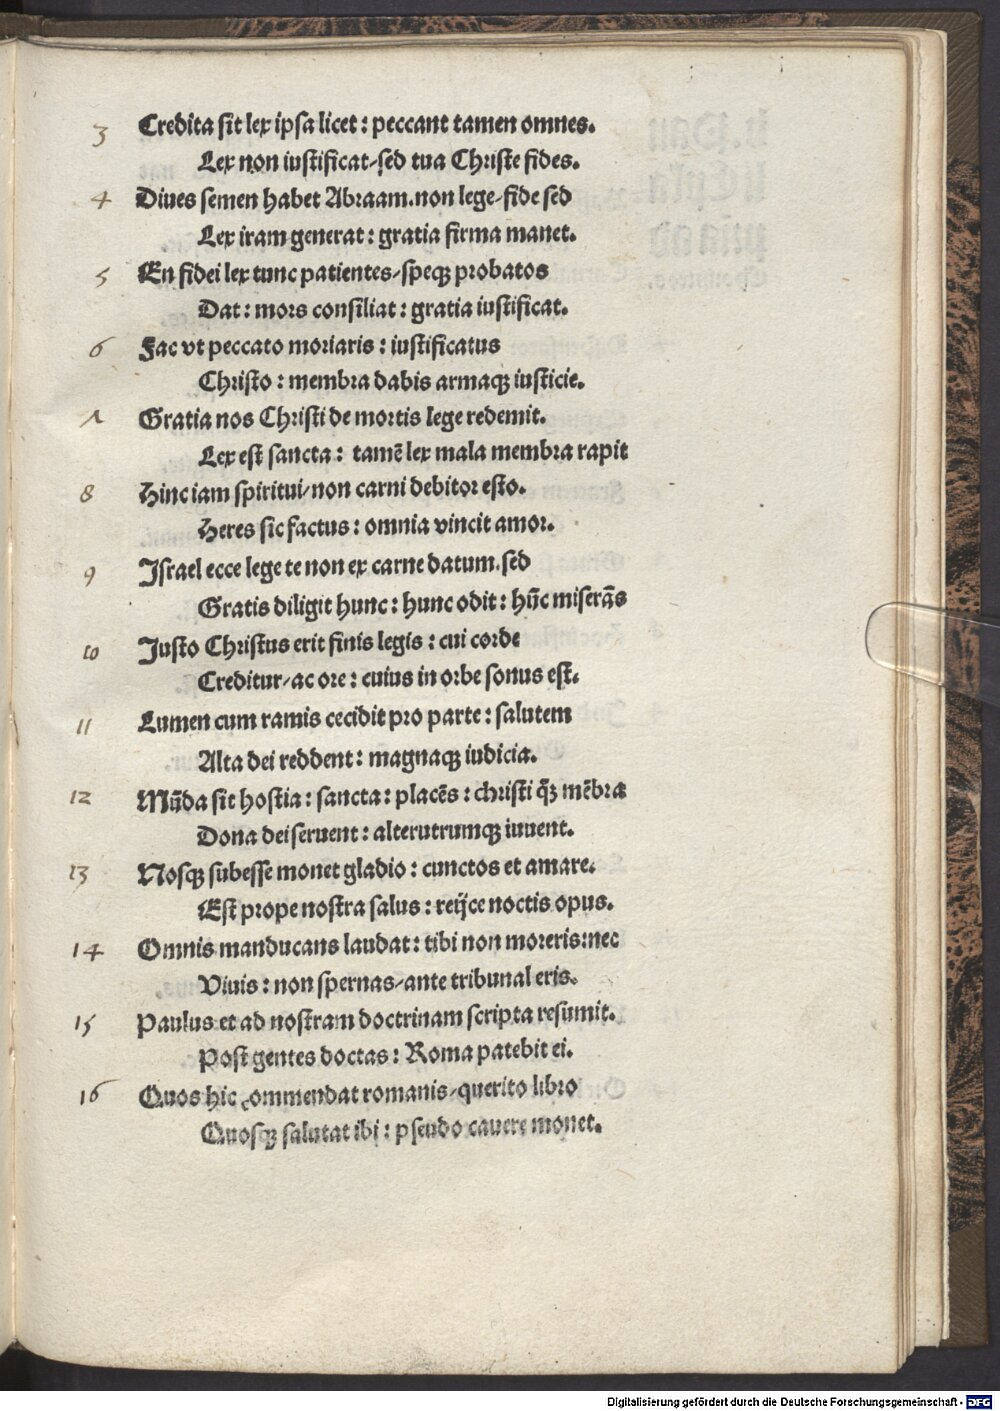 3 Credita sit lex ipsa licet : peccant tamen omnes.
Lex non iustificat/sed tua Christe fides.
4 Diues semen habet Abraam.non lege/fide sed
Lex iram generat : gratia firma manet.
5 En fidei lex tunc patientes/speqꝫ probatos
Dat : mors consiliat : gratia iustificat.
6 Fac vt peccato moriaris : iustificatus
Christo : membra dabis armaqꝫ iusticie.
7 Gratia nos Christi de mortis lege redemit.
Lex est sancta : tamē lex mala membra rapit
8 Hinc iam spiritui/non carni debitor esto.
Heres sic factus : omnia vincit amor.
9 Israel ecce lege te non ex carne datum.sed
Gratis diligit hunc : hunc odit : hūc miserās
10 Justo Christus erit finis legis : cui corde
Creditur/ac ore : cuius in orbe sonus est.
11 Lumen cum ramis cecidit pro parte : salutem
Alta dei reddent : magnaqꝫ iudicia.
12 Mūda sit hostia : sancta : placēs : christi q̄ꝫ mēbra
Dona dei seruent : alterutrumqꝫ iuuent.
13 Nosqꝫ subesse monet gladio : cunctos et amare.
Est prope nostra salus : reijce noctis opus.
14 Omnis manducans laudat : tibi non moreris:nec
Viuis : non spernas/ante tribunal eris.
15 Paulus et ad nostram doctrinam scripta resumit.
Post gentes doctas : Roma patebit ei.
16 Quos hic commendat romanis/querito libro
Quosqꝫ salutat ibi : pseudo cauere monet.
Digitalisierung gefördert durch die Deutsche Forschungsgemeinschaft - DFG